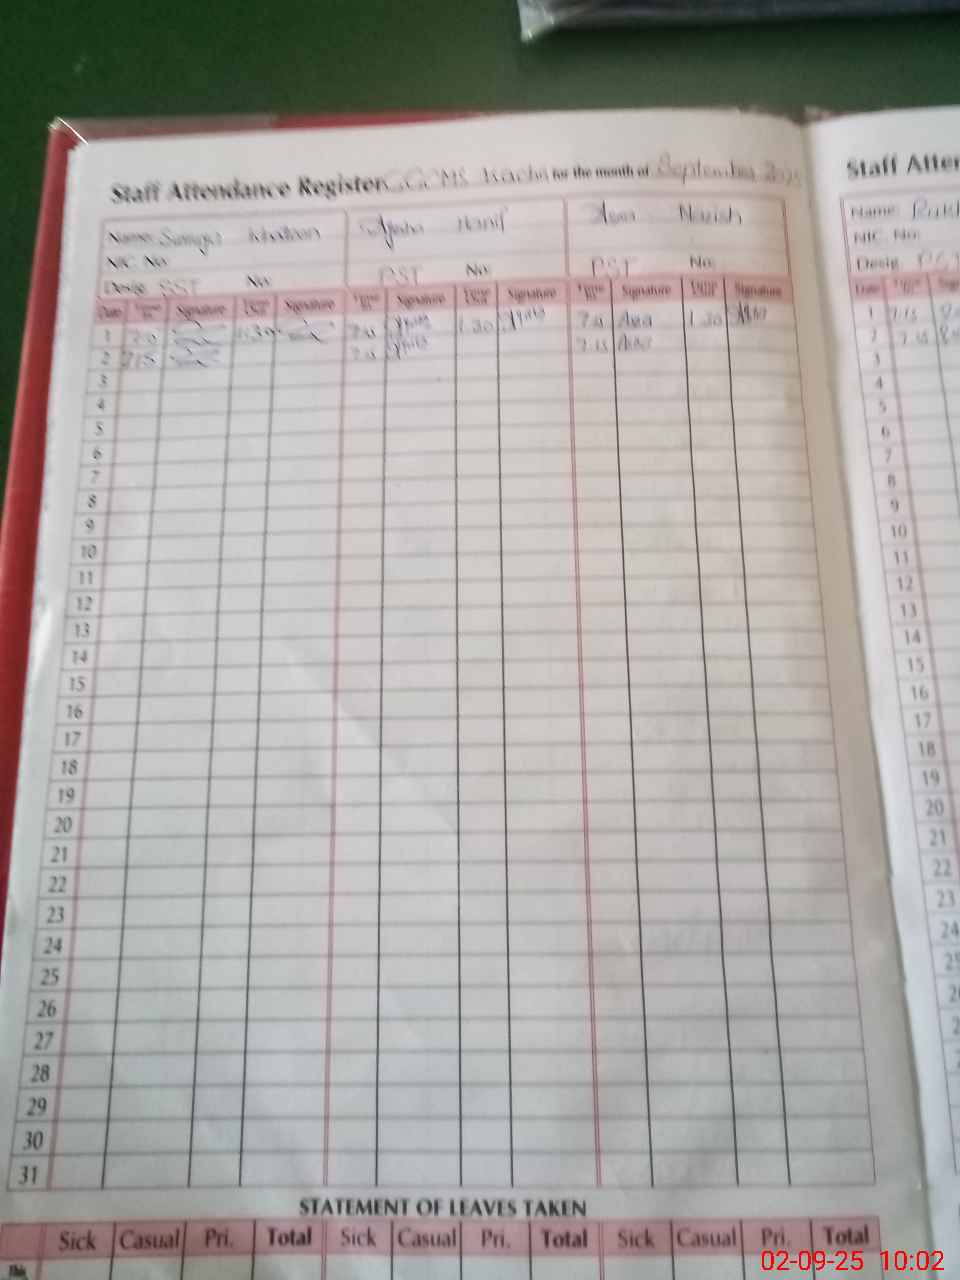 Staff Attendance Register GGCMS Kachi for the month of September 2025
Name: Sumaya Khatoon Ayesha Hanif Asma Nazish
NIC. No:
Desig. SST No: PST No: PST No:
Date Time In Signature Time Out Signature Time In Signature Time Out Signature Time In Signature Time Out Signature
1 1.30 1.30
2 7.15 7.15
3
4
5
6
7
8
9
10
11
12
13
14
15
16
17
18
19
20
21
22
23
24
25
26
27
28
29
30
31
STATEMENT OF LEAVES TAKEN
Sick Casual Pri. Total Sick Casual Pri. Total Sick Casual Pri. Total
This
Staff Atten
Name:
NIC. No:
Desig.
Date
1 7.15
2 7.15
3
4
5
6
7
8
9
10
11
12
13
14
15
16
17
18
19
20
21
22
23
24
02-09-25 10:02